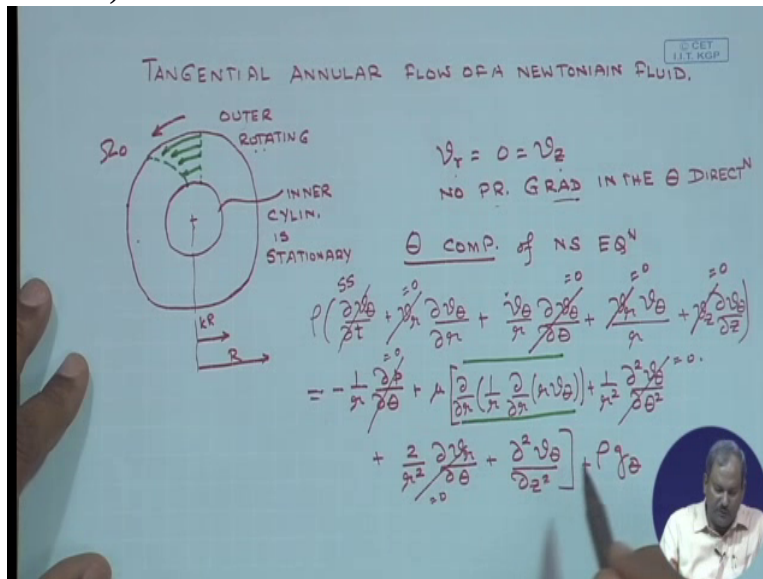 © CET
I.I.T. KGP
TANGENTIAL ANNULAR FLOW OF A NEWTONIAIN FLUID.
OUTER
ROTATING
Ω0
INNER
CYLIN.
IS
STATIONARY
kR
R
υr = 0 = υz
NO PR. GRAD IN THE θ DIRECTᴺ
θ COMP. of NS EQᴺ
SS =0 =0 =0 =0
ρ(∂υθ/∂t + υr ∂υθ/∂r + υθ/r ∂υθ/∂θ + υr υθ/r + υz ∂υθ/∂z)
= - 1/r ∂p/∂θ =0 + μ[∂/∂r(1/r ∂/∂r(rυθ)) + 1/r² ∂²υθ/∂θ² =0.
+ 2/r² ∂υr/∂θ =0 + ∂²υθ/∂z²] + ρgθ